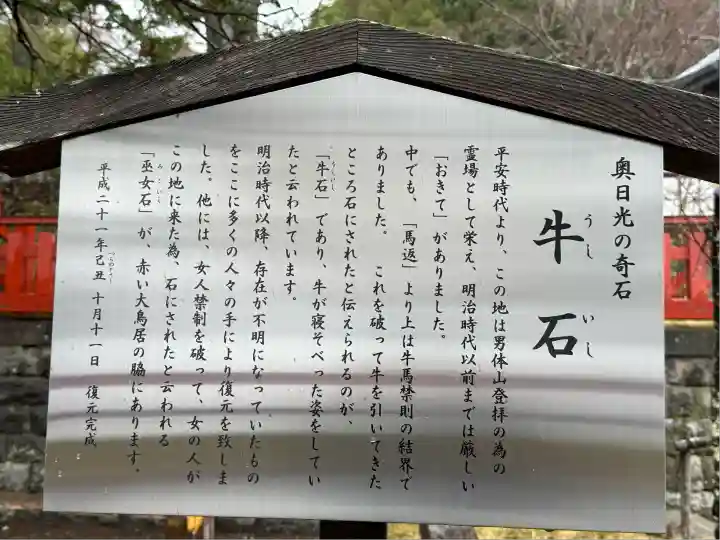 奥日光の奇石
牛石
うしいし
平安時代より、この地は男体山登拝の為の
霊場として栄え、明治時代以前までは厳しい
「おきて」がありました。
中でも、「馬返」より上は牛馬禁則の結界で
ありました。これを破って牛を引いてきた
ところ石にされたと伝えられるのが、
「牛石」であり、牛が寝そべった姿をしてい
うしいし
たと云われています。
明治時代以降、存在が不明になっていたもの
をここに多くの人々の手により復元を致しま
した。他には、女人禁制を破って、女の人が
この地に来た為、石にされたと云われる
「巫女石」が、赤い大鳥居の脇にあります。
平成二十一年己丑 十月十一日 復元完成